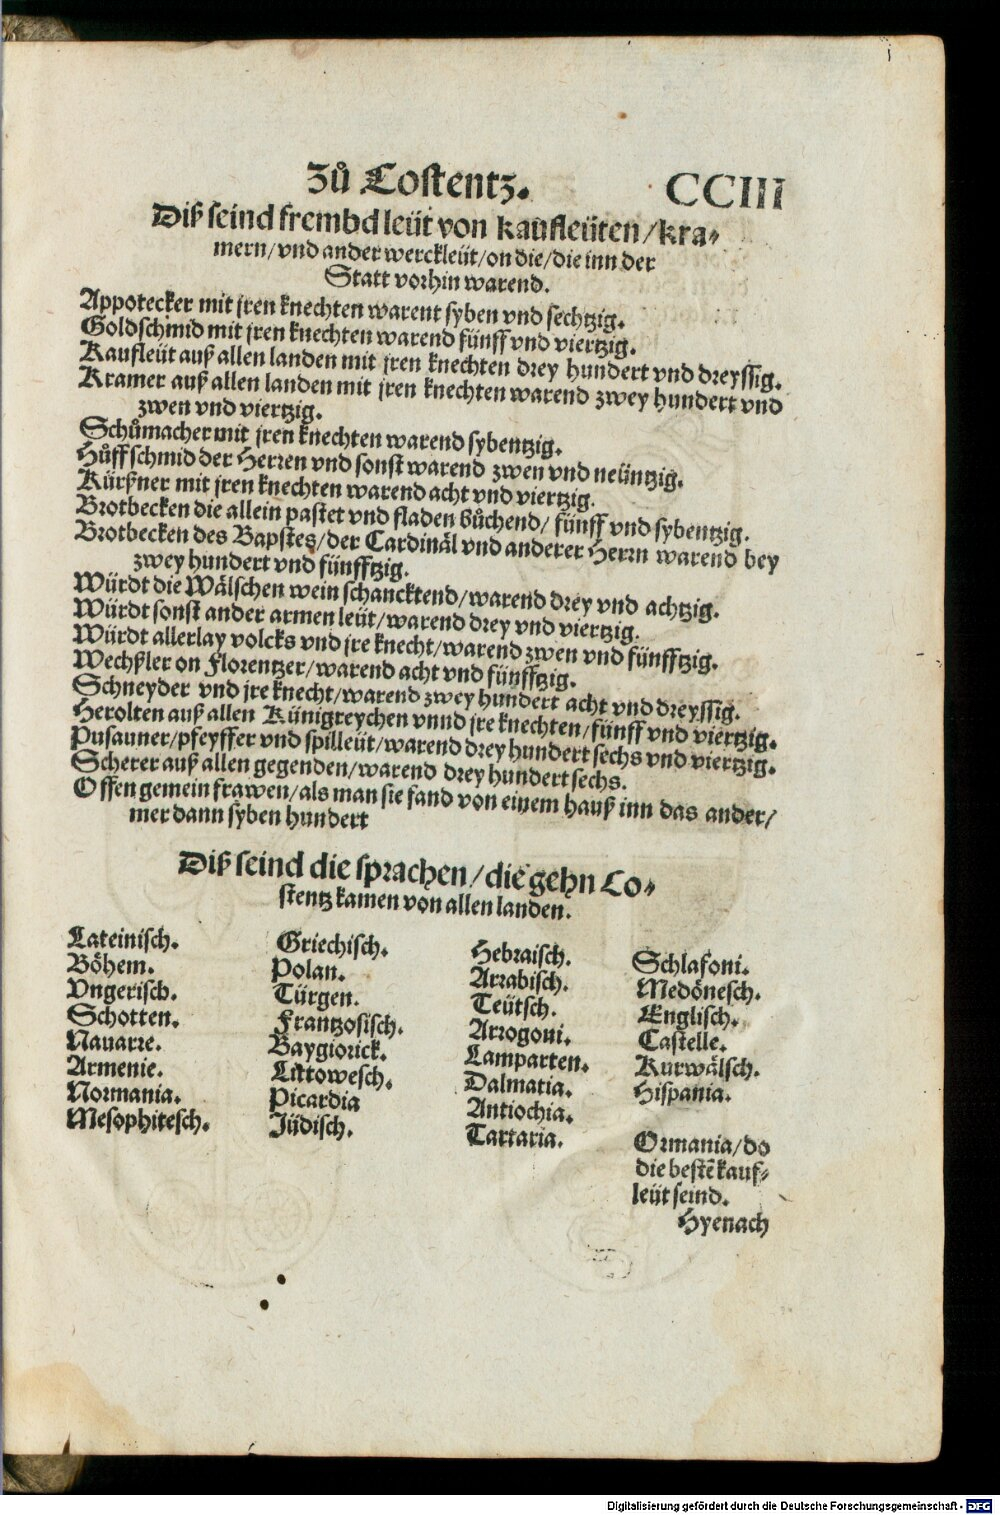 Zů Costentz. CCIII
Diß seind frembd leüt von kaufleüten/kra-
mern/vnd ander werckleüt/on die/die inn der
Statt vorhin warend.
Appotecker mit jren knechten warent syben vnd sechtzig.
Goldschmid mit jren knechten warend fünff vnd viertzig.
Kaufleüt auß allen landen mit jren knechten drey hundert vnd dreyssig.
Kramer auß allen landen mit jren knechten warend zwey hundert vnd
zwen vnd viertzig.
Schůmacher mit jren knechten warend sybentzig.
Hůffschmid der Herren vnd sonst warend zwen vnd neüntzig.
Kürßner mit jren knechten warend acht vnd viertzig.
Brotbecken die allein pastet vnd fladen bůchend/ fünff vnd sybentzig.
Brotbecken des Bapstes/der Cardinäl vnd anderer Herrn warend bey
zwey hundert vnd fünfftzig.
Würdt die Wälschen wein schancktend/warend drey vnd achtzig.
Würdt sonst ander armen leüt/warend drey vnd viertzig.
Würdt allerlay volcks vnd jre knecht/warend zwen vnd fünfftzig.
Wechßler on Florentzer/warend acht vnd fünfftzig.
Schneyder vnd jre knecht/warend zwey hundert acht vnd dreyssig.
Herolten auß allen Künigreychen vnnd jre knechten/fünff vnd viertzig.
Pusauner/pfeyffer vnd spilleüt/warend drey hundert sechs vnd viertzig.
Scherer auß allen gegenden/warend drey hundert sechs.
Offen gemein frawen/als man sie fand von einem hauß inn das ander/
mer dann syben hundert
Diß seind die sprachen/die gehn Co-
stentz kamen von allen landen.
Lateinisch.
Böhem.
Vngerisch.
Schotten.
Nauarre.
Armenie.
Normania.
Mesophitesch.
Griechisch.
Polan.
Türgen.
Frantzosisch.
Baygiorick.
Littowesch.
Picardia
Jüdisch.
Hebraisch.
Arrabisch.
Teütsch.
Arrogoni.
Lamparten.
Dalmatia.
Antiochia.
Tartaria.
Schlafoni.
Medönesch.
Englisch.
Castelle.
Kurwälsch.
Hispania.
Ormania/do
die bestē kauf-
leüt seind.
Hyenach
Digitalisierung gefördert durch die Deutsche Forschungsgemeinschaft - DFG